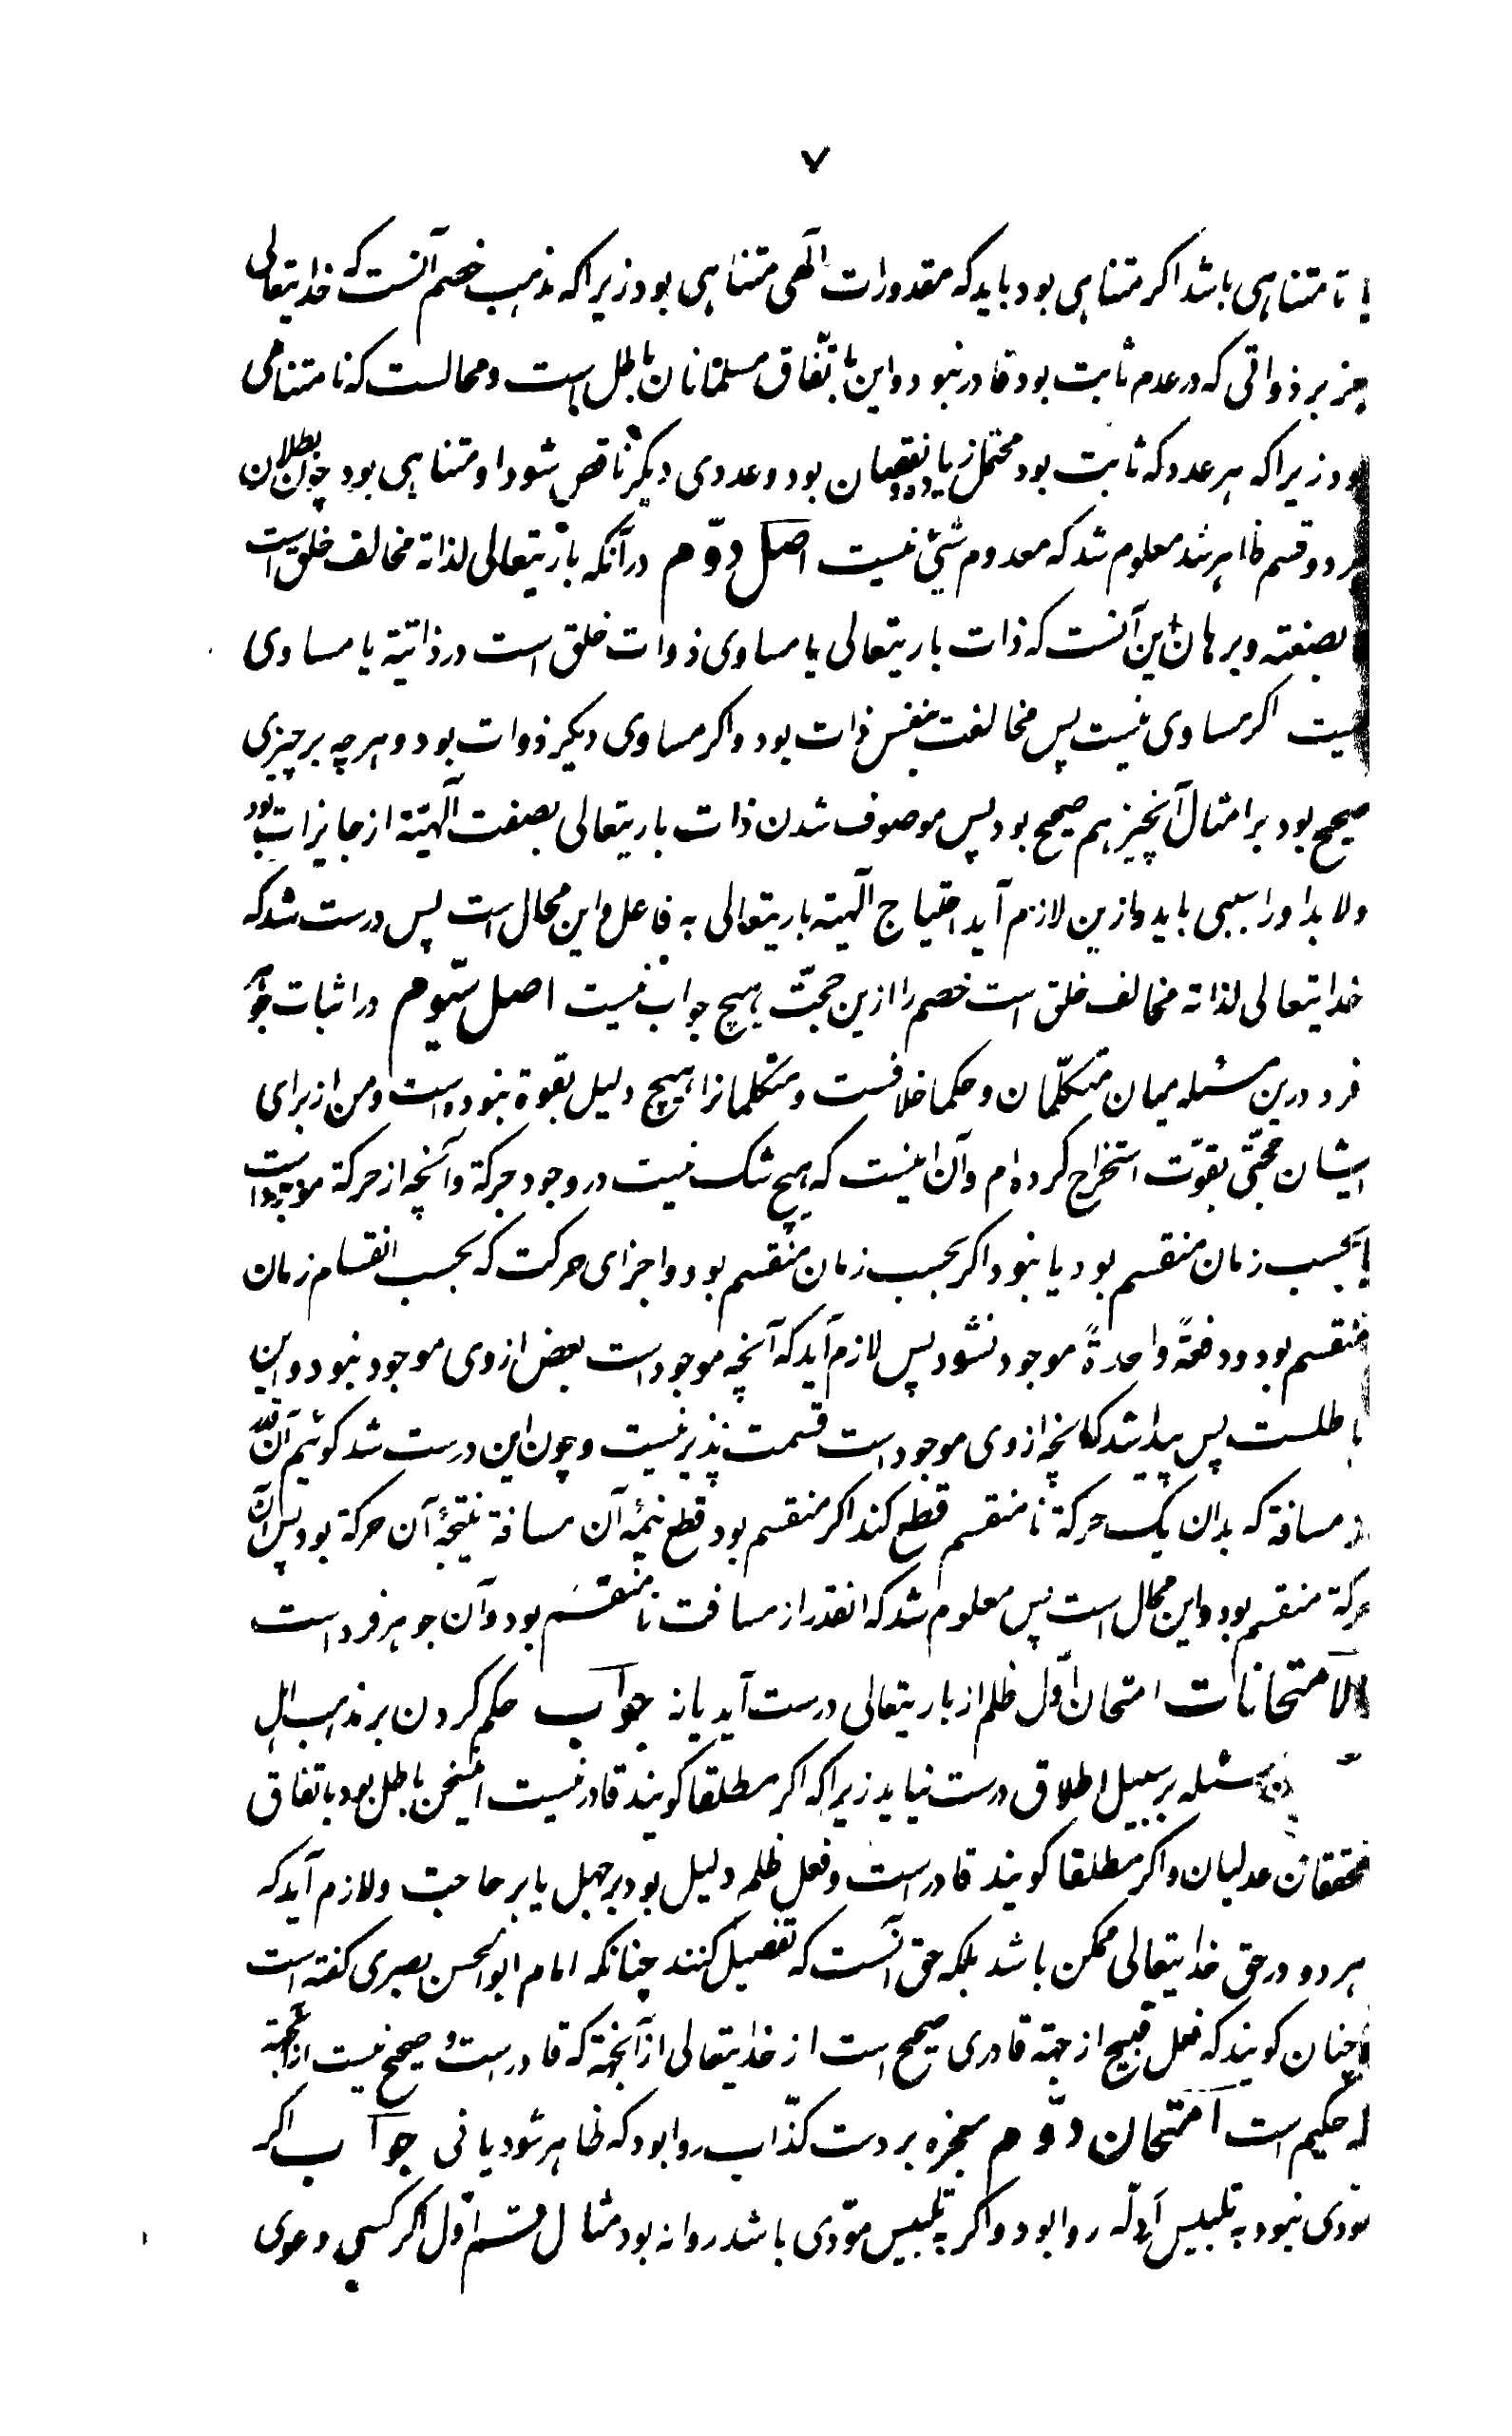 ۷
یا نامتناهی باشد اکر متناهی بود باید که مقدورات الهی متناهی بود زیرا که مذهب خصم آنست که خدایتعالی
جز بر ذواتی که در عدم ثابت بود قادر نبود و این باتفاق مسلمانان باطل است و محالست که نامتناهی
بود زیرا که هر عدد که ثابت بود محتمل زیاده و نقصان بود و عددی دیکر ناقص شود او متناهی بود چون بطلان
هر دو قسم ظاهر شد معلوم شد که معدوم شیئ نیست اصل دوّم در آنکه باریتعالی لذاته مخالف خلق است
لا بصفته و برهان این آنست که ذات باریتعالی یا مساوی ذوات خلق است در ذاتیّة یا مساوی
نیست اکر مساوی نیست پس مخالفت بنفس ذات بود و اکر مساوی دیکر ذوات بود و هر چه بر چیزی
صحیح بود بر امثال آنچیز هم صحیح بود پس موصوف شدن ذات باریتعالی بصفت الهیّة از جایزات بود
و لابد او را سببی باید و ازین لازم آید احتیاج الهیة باریتعالی به فاعل و این محال است پس درست شد که
خدایتعالی لذاته مخالف خلق است خصم را ازین حجّت هیچ جواب نیست اصل سیّوم در اثبات جوهر
فرد درین مسئله میان متکلّمان و حکما خلافست و متکلمانرا هیچ دلیل بقوة نبوده است و من از برای
ایشان حجّتی بقوّت استخراج کرده ام و آن اینست که هیچ شک نیست در وجود حرکة و آنچه از حرکة موجود است
یا بحسب زمان منقسم بود یا نبود اکر بحسب زمان منقسم بود و اجزای حرکت که بحسب انقسام زمان
منقسم بود و دفعةً واحدةً موجود نشود پس لازم آید که آنچه موجود است بعض از وی موجود نبود و این
باطلست پس پیدا شد که آنچه از وی موجود است قسمت پذیر نیست و چون این درست شد کوئیم آن قدر
از مسافة که بدان یک حرکة نامنقسم قطع کند اکر منقسم بود قطع نیمۀ آن مسافة نتیجۀ آن حرکة بود پس آن
حرکة منقسم بود و این محال است پس معلوم شد که انقدر از مسافت نامنقسم بود و آن جوهر فرد است
الامتحانات امتحان اوّل ظلم از باریتعالی درست آید یا نه جواب حکم کردن بر مذهب اهل
مسئله بر سبیل اطلاق درست نیاید زیرا که اکر مطلقا کویند قادر نیست اینسخن باطل بود باتفاق
محققان عدلیان و اکر مطلقا کویند قادر است و فعل ظلم دلیل بود بر جهل یا بر حاجت و لازم آید که
هر دو در حق خدایتعالی ممکن باشد بلکه حق آنست که تفصیل کنند چنانکه امام ابوالحسن بصری کفته است
چنان کویند که فعل قبیح از جهة قادری صحیح است از خدایتعالی از آنجهة که قادر است و صحیح نیست از آنجهة
که حکیم است امتحان دوّم معجزه بر دست کذّاب روا بود که ظاهر شود یا نی جواب اکر
مؤدی نبود به تلبیس ادلّه روا بود و اکر به تلبیس مؤدی باشد روا نه بود مثال قسم اوّل اکر کسی دعوی